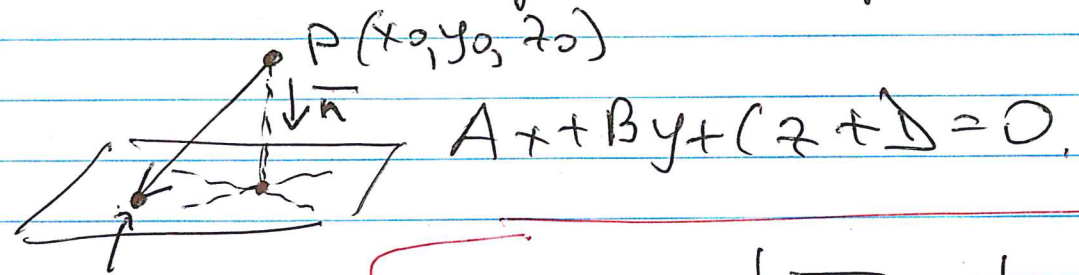 P(x0, y0, z0)
n̅
Ax+By+Cz+D=0.